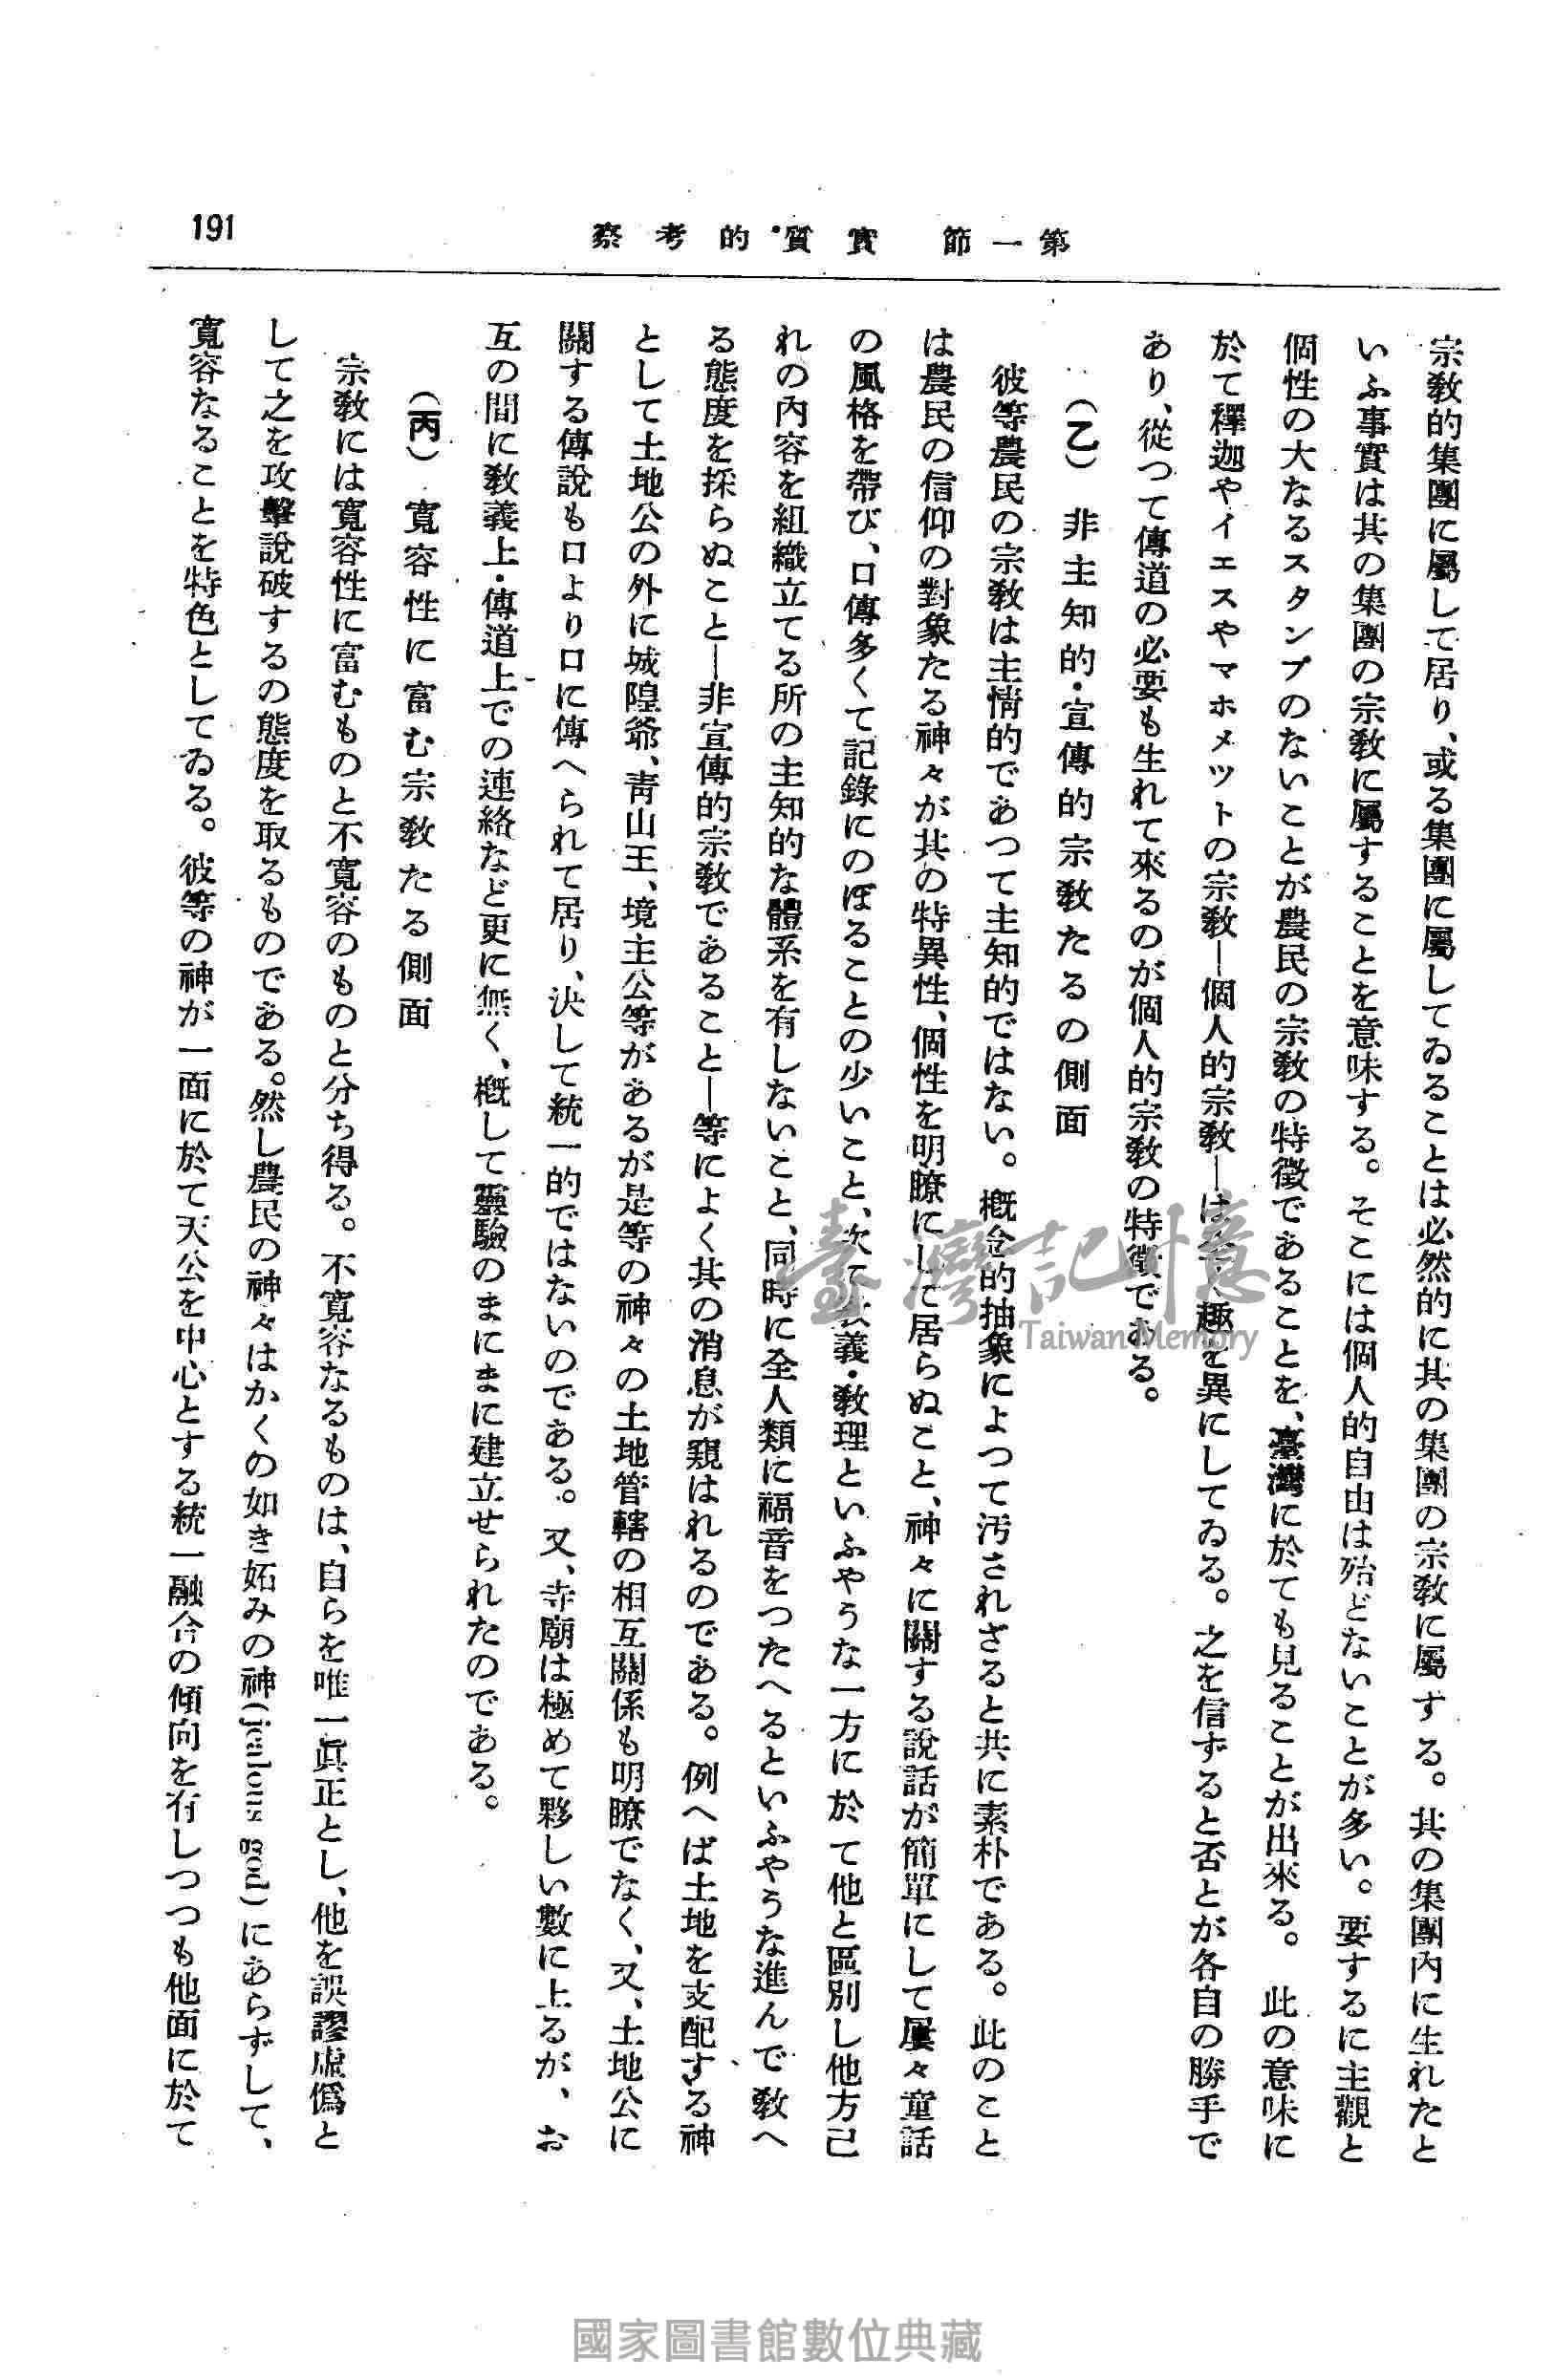 191
第一節　實質的考察
宗教的集團に屬して居り、或る集團に屬してゐることは必然的に其の集團の宗教に屬する。其の集團內に生れたと
いふ事實は其の集團の宗教に屬することを意味する。そこには個人的自由は殆どないことが多い。要するに主觀と
個性の大なるスタンプのないことが農民の宗教の特徵であることを、臺灣に於ても見ることが出來る。此の意味に
於て釋迦やイエスやマホメツトの宗教—個人的宗教—は趣を異にしてゐる。之を信ずると否とが各自の勝手で
あり、從つて傳道の必要も生れて來るのが個人的宗教の特徵である。
（乙）　非主知的・宣傳的宗教たるの側面
彼等農民の宗教は主情的であつて主知的ではない。概念的抽象によつて汚されざると共に素朴である。此のこと
は農民の信仰の對象たる神々が其の特異性、個性を明瞭にして居らぬこと、神々に關する說話が簡單にして屢々童話
の風格を帶び、口傳多くて記錄にのぼることの少いこと、次に教義・教理といふやうな一方に於て他と區別し他方己
れの內容を組織立てる所の主知的な體系を有しないこと、同時に全人類に福音をつたへるといふやうな進んで教へ
る態度を採らぬこと—非宣傳的宗教であること—等によく其の消息が窺はれるのである。例へば土地を支配する神
として土地公の外に城隍爺、靑山王、境主公等があるが是等の神々の土地管轄の相互關係も明瞭でなく、又、土地公に
關する傳說も口より口に傳へられて居り、決して統一的ではないのである。又、寺廟は極めて夥しい數に上るが、お
互の間に教義上・傳道上での連絡など更に無く、概して靈驗のまにまに建立せられたのである。
（丙）　寬容性に富む宗教たる側面
宗教には寬容性に富むものと不寬容のものと分ち得る。不寬容なるものは、自らを唯一眞正とし、他を誤謬虛僞と
して之を攻擊說破するの態度を取るものである。然し農民の神々はかくの如き妬みの神(jealous god)にあらずして、
寬容なることを特色としてゐる。彼等の神が一面に於て天公を中心とする統一融合の傾向を有しつつも他面に於て
臺灣記憶
Taiwan Memory
國家圖書館數位典藏